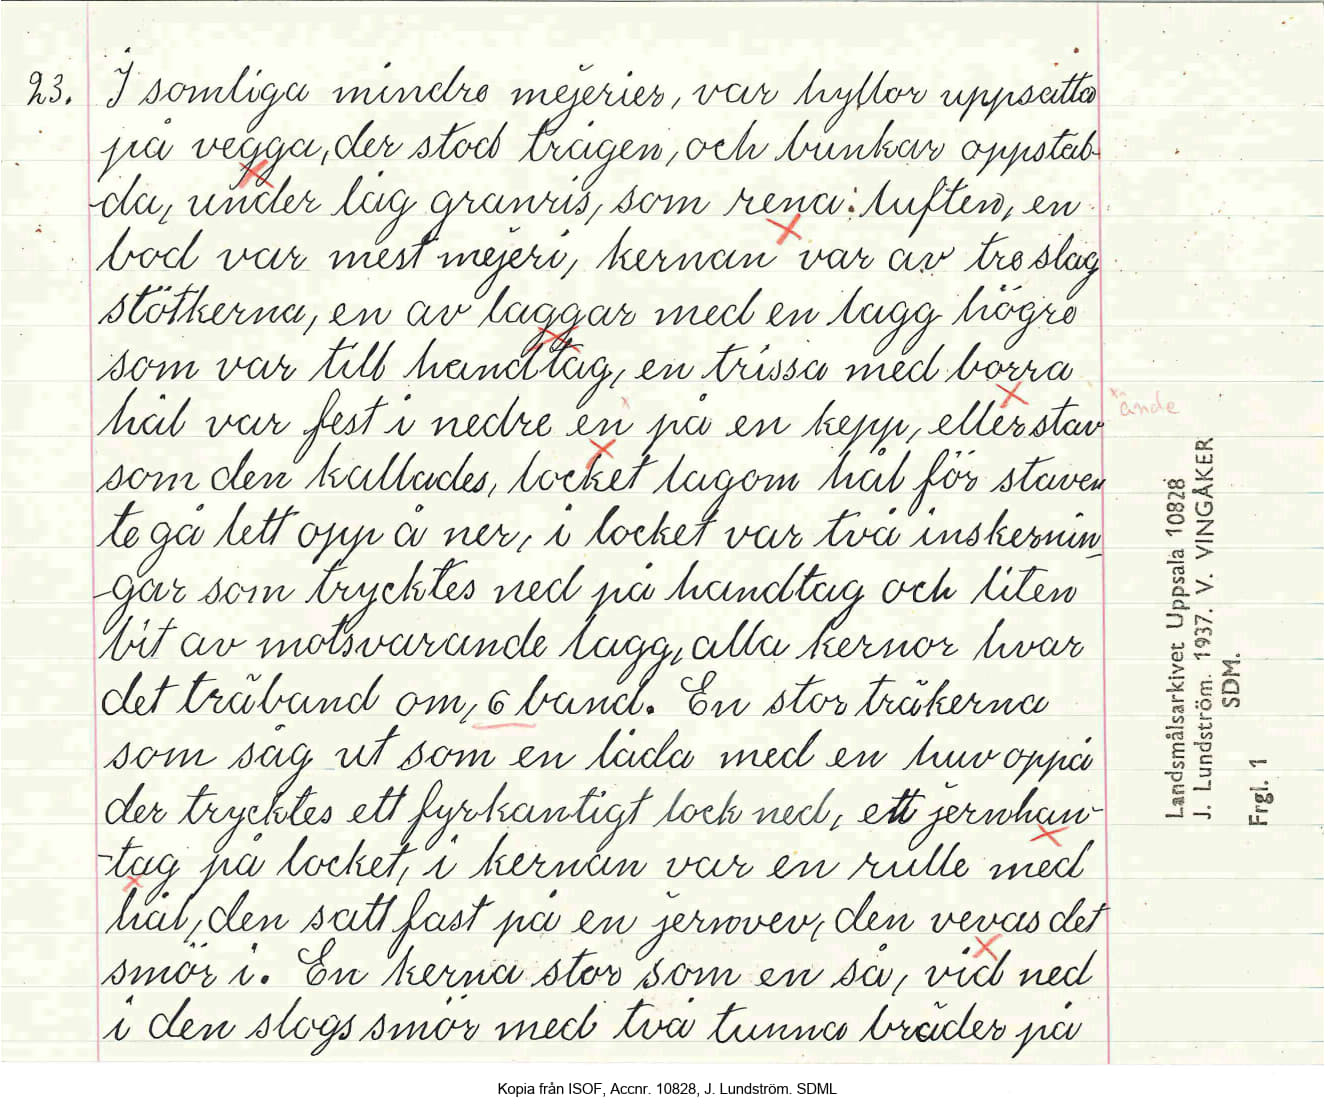 23. I somliga mindre mejerier, var hyllor uppsatta
på vegga, der stod trågen, och bunkar oppstab-
-da, under låg granris, som rena: luften, en
bod var mest mejeri, kernan var av tre slag
stötkerna, en av laggar med en lagg högre
som var till handtag, en trissa med borra
hål var fest i nedre en x på en kepp, eller stav
x ände
som den kallades, locket lagom hål för staven
te gå lett opp å ner, i locket var två inskernin-
-gar som trycktes ned på handtag och liten
bit av motsvarande lagg, alla kernor hvar
det träband om, 6 band. En stor träkerna
som såg ut som en låda med en huv oppå
der trycktes ett fyrkantigt lock ned, ett jernhan-
-tag på locket, i kernan var en rulle med
hål, den satt fast på en jernvev, den vevas det
smör i. En kerna stor som en så, vid ned
i den slogs smör med två tunna bräder på
Landsmålsarkivet Uppsala 10828
J. Lundström. 1937. V. VINGÅKER
SDM.
Frgl. 1
Kopia från ISOF, Accnr. 10828, J. Lundström. SDML